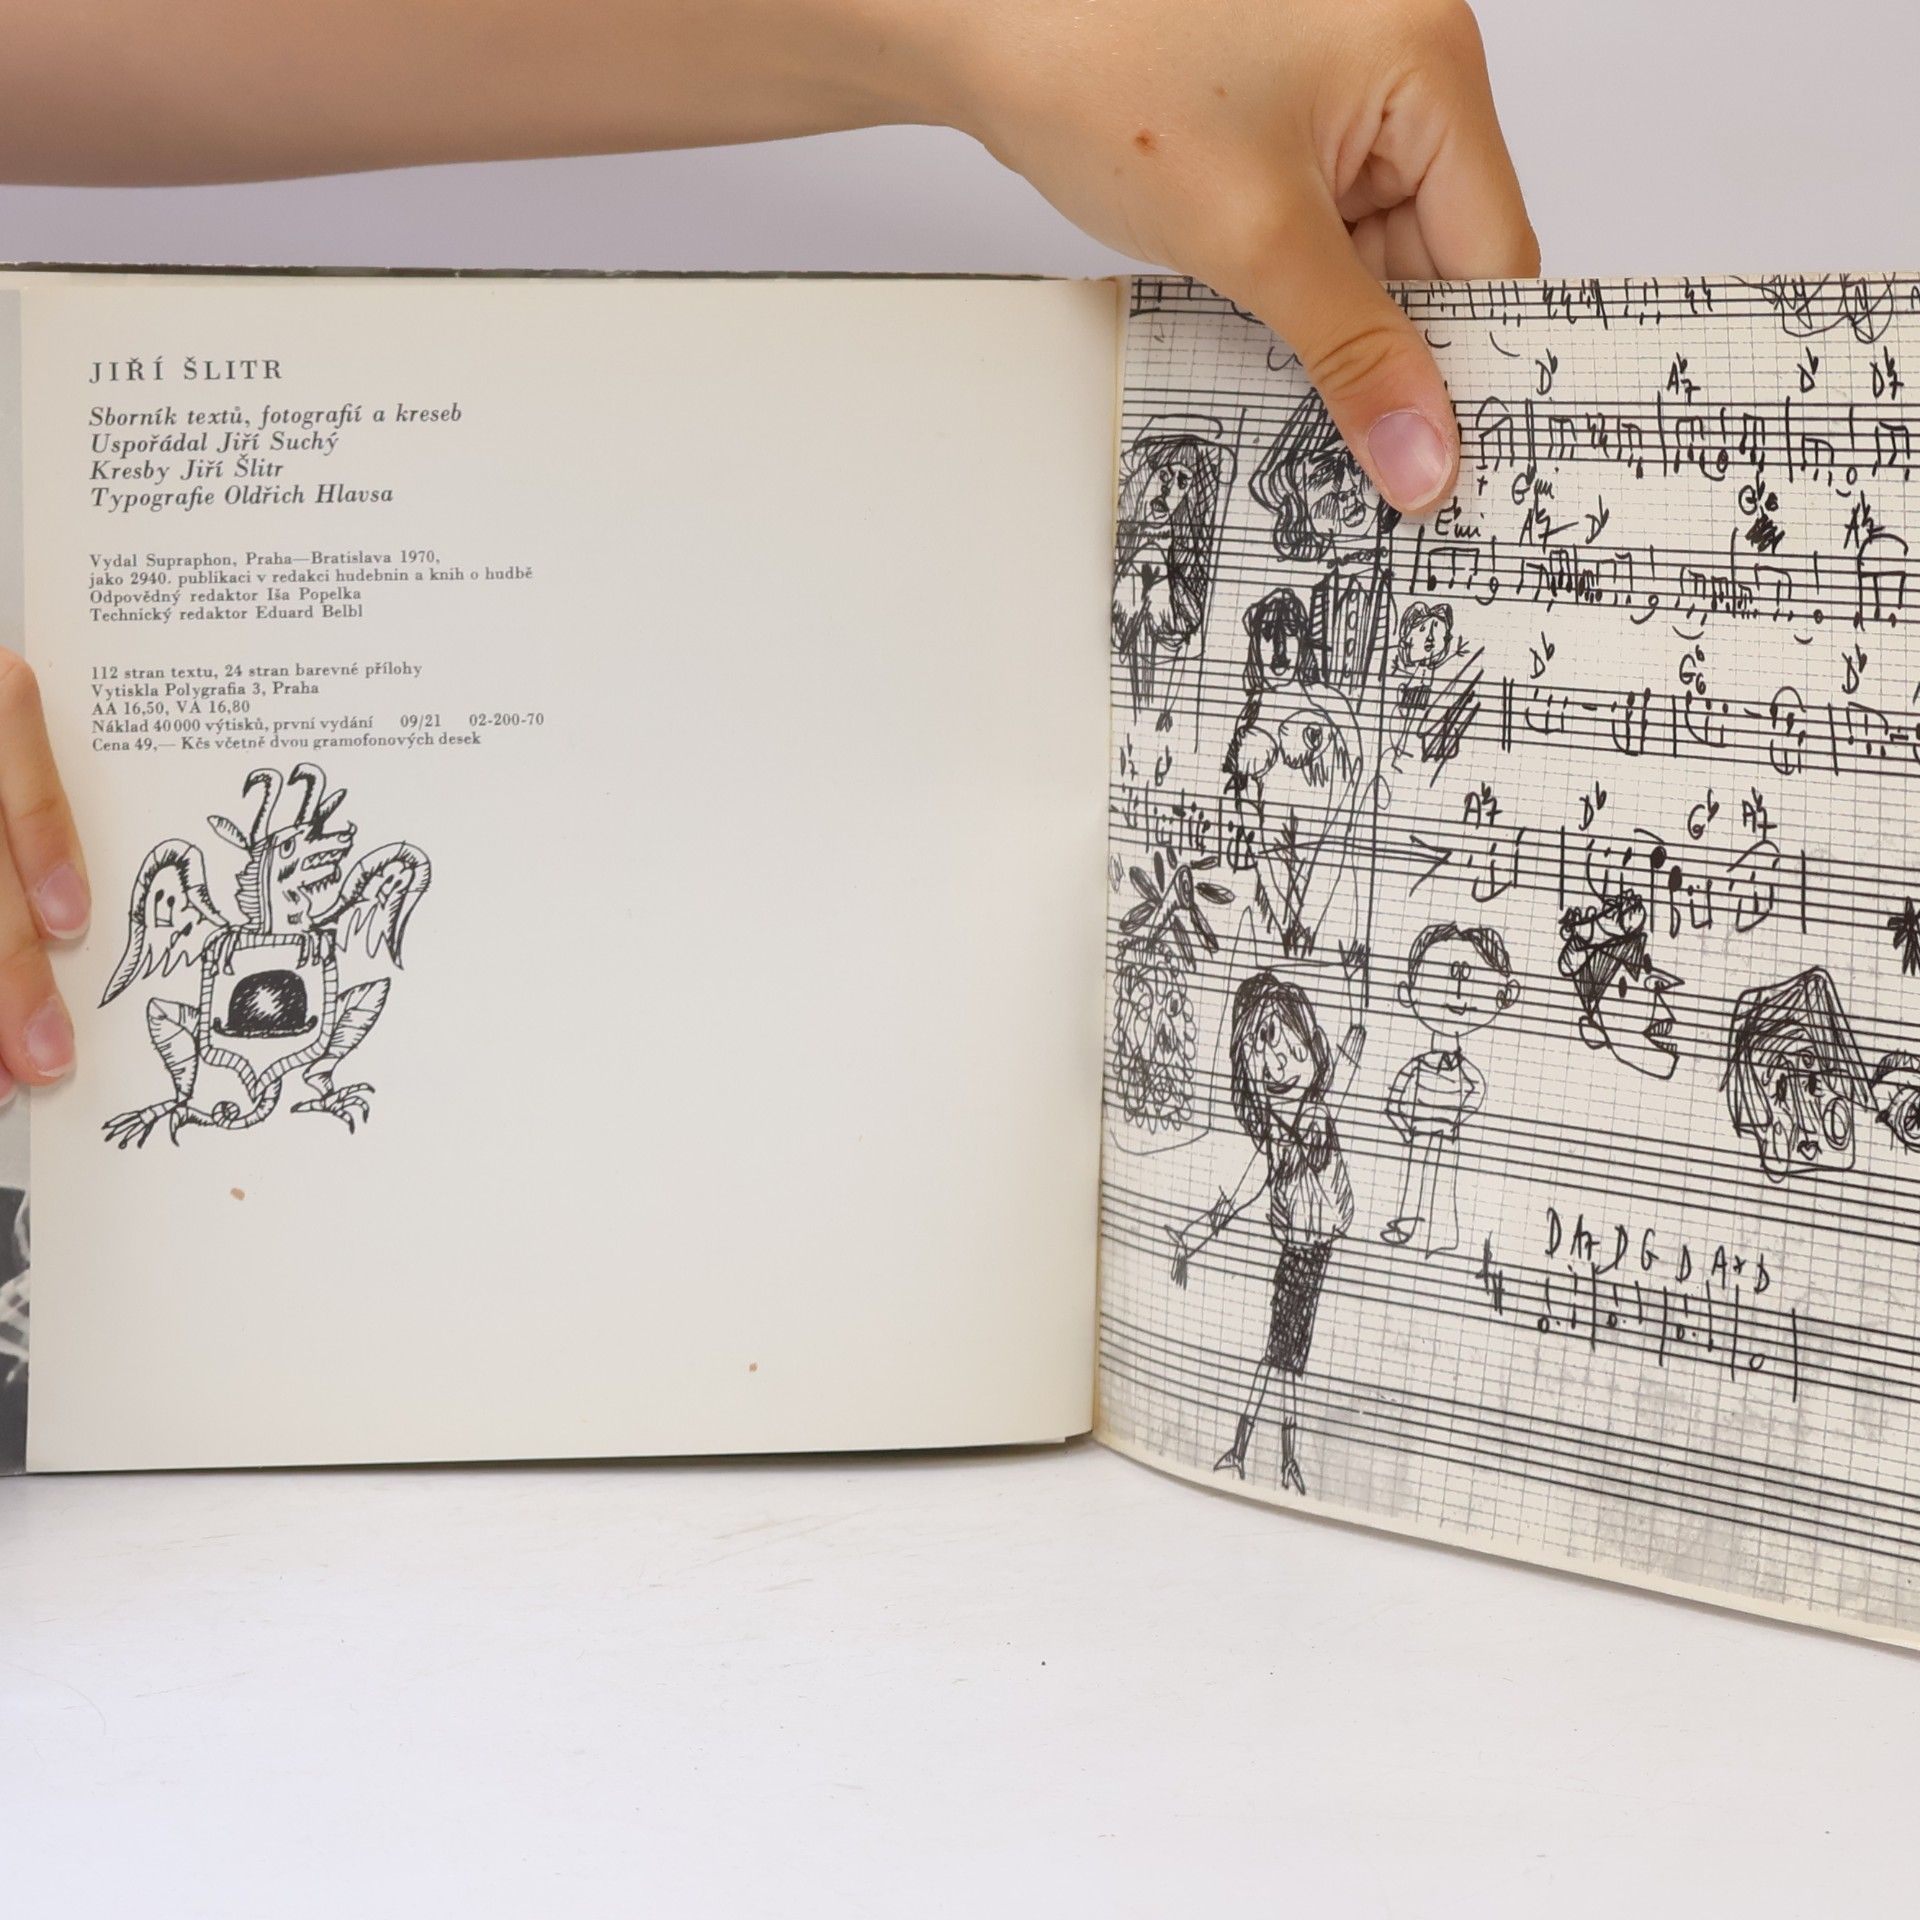 JIŘÍ ŠLITR
Sborník textů, fotografií a kreseb
Uspořádal Jiří Suchý
Kresby Jiří Šlitr
Typografie Oldřich Hlavsa
Vydal Supraphon, Praha—Bratislava 1970,
jako 2940. publikaci v redakci hudebnin a knih o hudbě
Odpovědný redaktor Iša Popelka
Technický redaktor Eduard Belbl
112 stran textu, 24 stran barevné přílohy
Vytiskla Polygrafia 3, Praha
AA 16,50, VA 16,80
Náklad 40 000 výtisků, první vydání 09/21 02-200-70
Cena 49,— Kčs včetně dvou gramofonových desek
D♭ A♭7 D♭ D♭7
E♭mi A♭7 D♭
D♭ G♭6 D♭
A♭7 D♭ G♭ A♭7
D A7 D G D A7 D